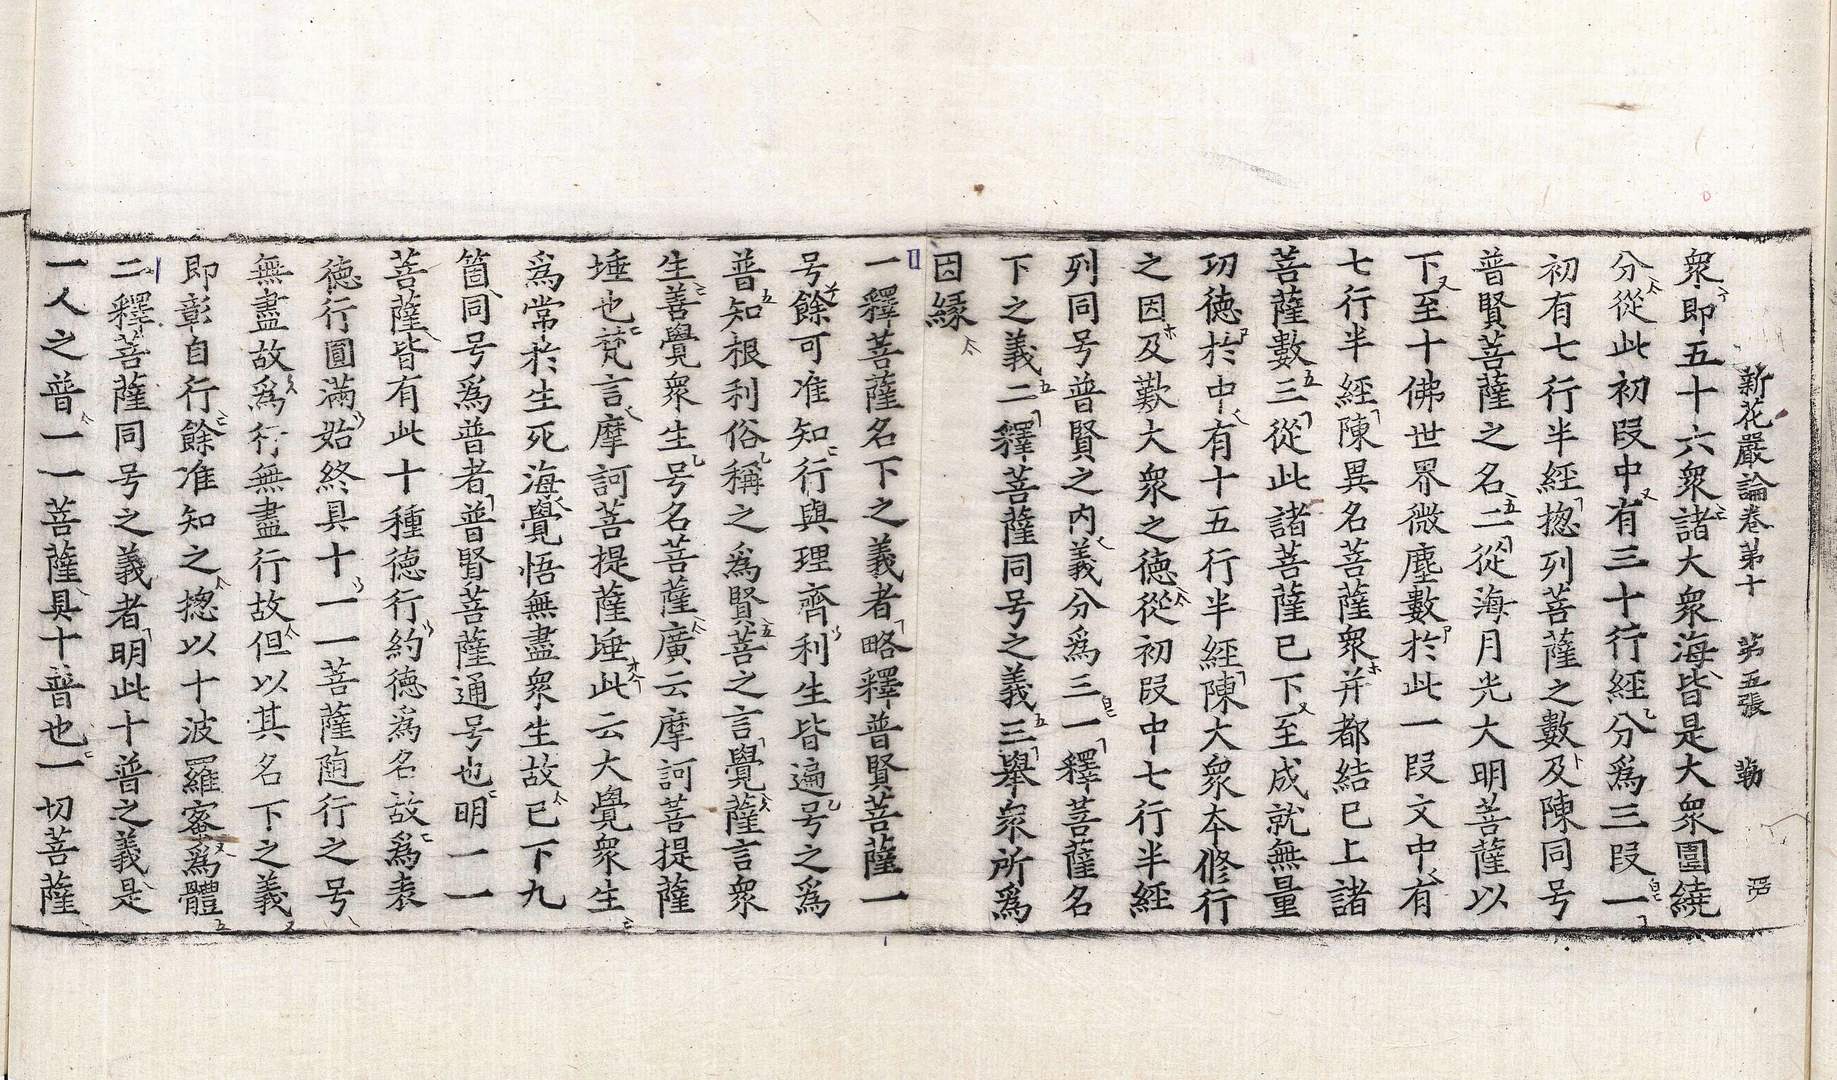 新花嚴論卷第十 第五張 勤
衆即五十六衆諸大衆海皆是大衆圍繞
分從此初段中有三十行經分爲三段一
初有七行半經揔列菩薩之數及陳同号
普賢菩薩之名二從海月光大明菩薩以
下至十佛世界微塵數於此一段文中有
七行半經陳異名菩薩衆并都結已上諸
菩薩數三從此諸菩薩已下至成就無量
功德於中有十五行半經陳大衆本修行
之因及歎大衆之德從初段中七行半經
列同号普賢之内義分爲三一釋菩薩名
下之義二釋菩薩同号之義三舉衆所爲
因緣
一釋菩薩名下之義者略釋普賢菩薩一
号餘可准知行與理齊利生皆遍号之爲
普知根利俗稱之爲賢菩之言覺薩言衆
生菩覺衆生号名菩薩廣云摩訶菩提薩
埵也梵言摩訶菩提薩埵此云大覺衆生
爲常於生死海覺悟無盡衆生故已下九
箇同号爲普者普賢菩薩通号也明一一
菩薩皆有此十種德行約德爲名故爲表
德行圓滿始終具十一一菩薩随行之号
無盡故爲行無盡行故但以其名下之義
即彰自行餘准知之揔以十波羅蜜爲體
二釋菩薩同号之義者明此十普之義是
一人之普一一菩薩具十普也一切菩薩